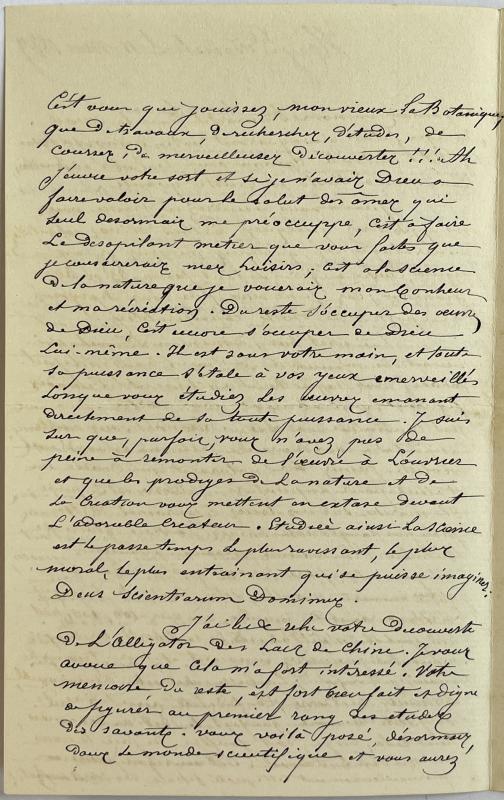 C'est vous qui jouissez, mon vieux, la Botanique,
que de travaux, de recherches, d'études, de
courses, de merveilleuses Découvertes !!! Ah
J'envie votre sort et si je n'avais Dieu a
faire valoir pour le salut des âmes qui
seul desormais me préoccuppe, c'est a faire
Le desopilant metier que vous faites que
je consacrerais mes loisirs ; c'est a la science
De la nature que je vouerais mon bonheur
et ma récréation. Du reste s'occuper des œuvres
de Dieu, c'est encore s'occuper de Dieu
Lui-même. Il est sous votre main, et toute
sa puissance s'étale à vos yeux emerveillés
Lorsque vous étudiez Les œuvres emanant
Directement de sa toute puissance. Je suis
sur que, parfois, vous n'avez pas de
peine à remonter de l'œuvre à L'ouvrier
et que les prodiges de La nature et de
La Creation vous mettent en extase devant
L'adorable Createur. Etudiée ainsi La Science
est le passe temps Le plus ravissant, le plus
moral, le plus entrainant qui se puisse imaginer.
Deus Scientiarum Dominus.
J'ai lu & relu votre Decouverte
De L'Alligator Des Lacs de Chine. Je vous
avoue que cela m'a fort intéressé. Votre
memoire du reste, est fort bien fait et digne
de figurer au premier rang des etudes
des savants. Vous voilà posé, désormais,
dans le monde scientifique et vous aurez